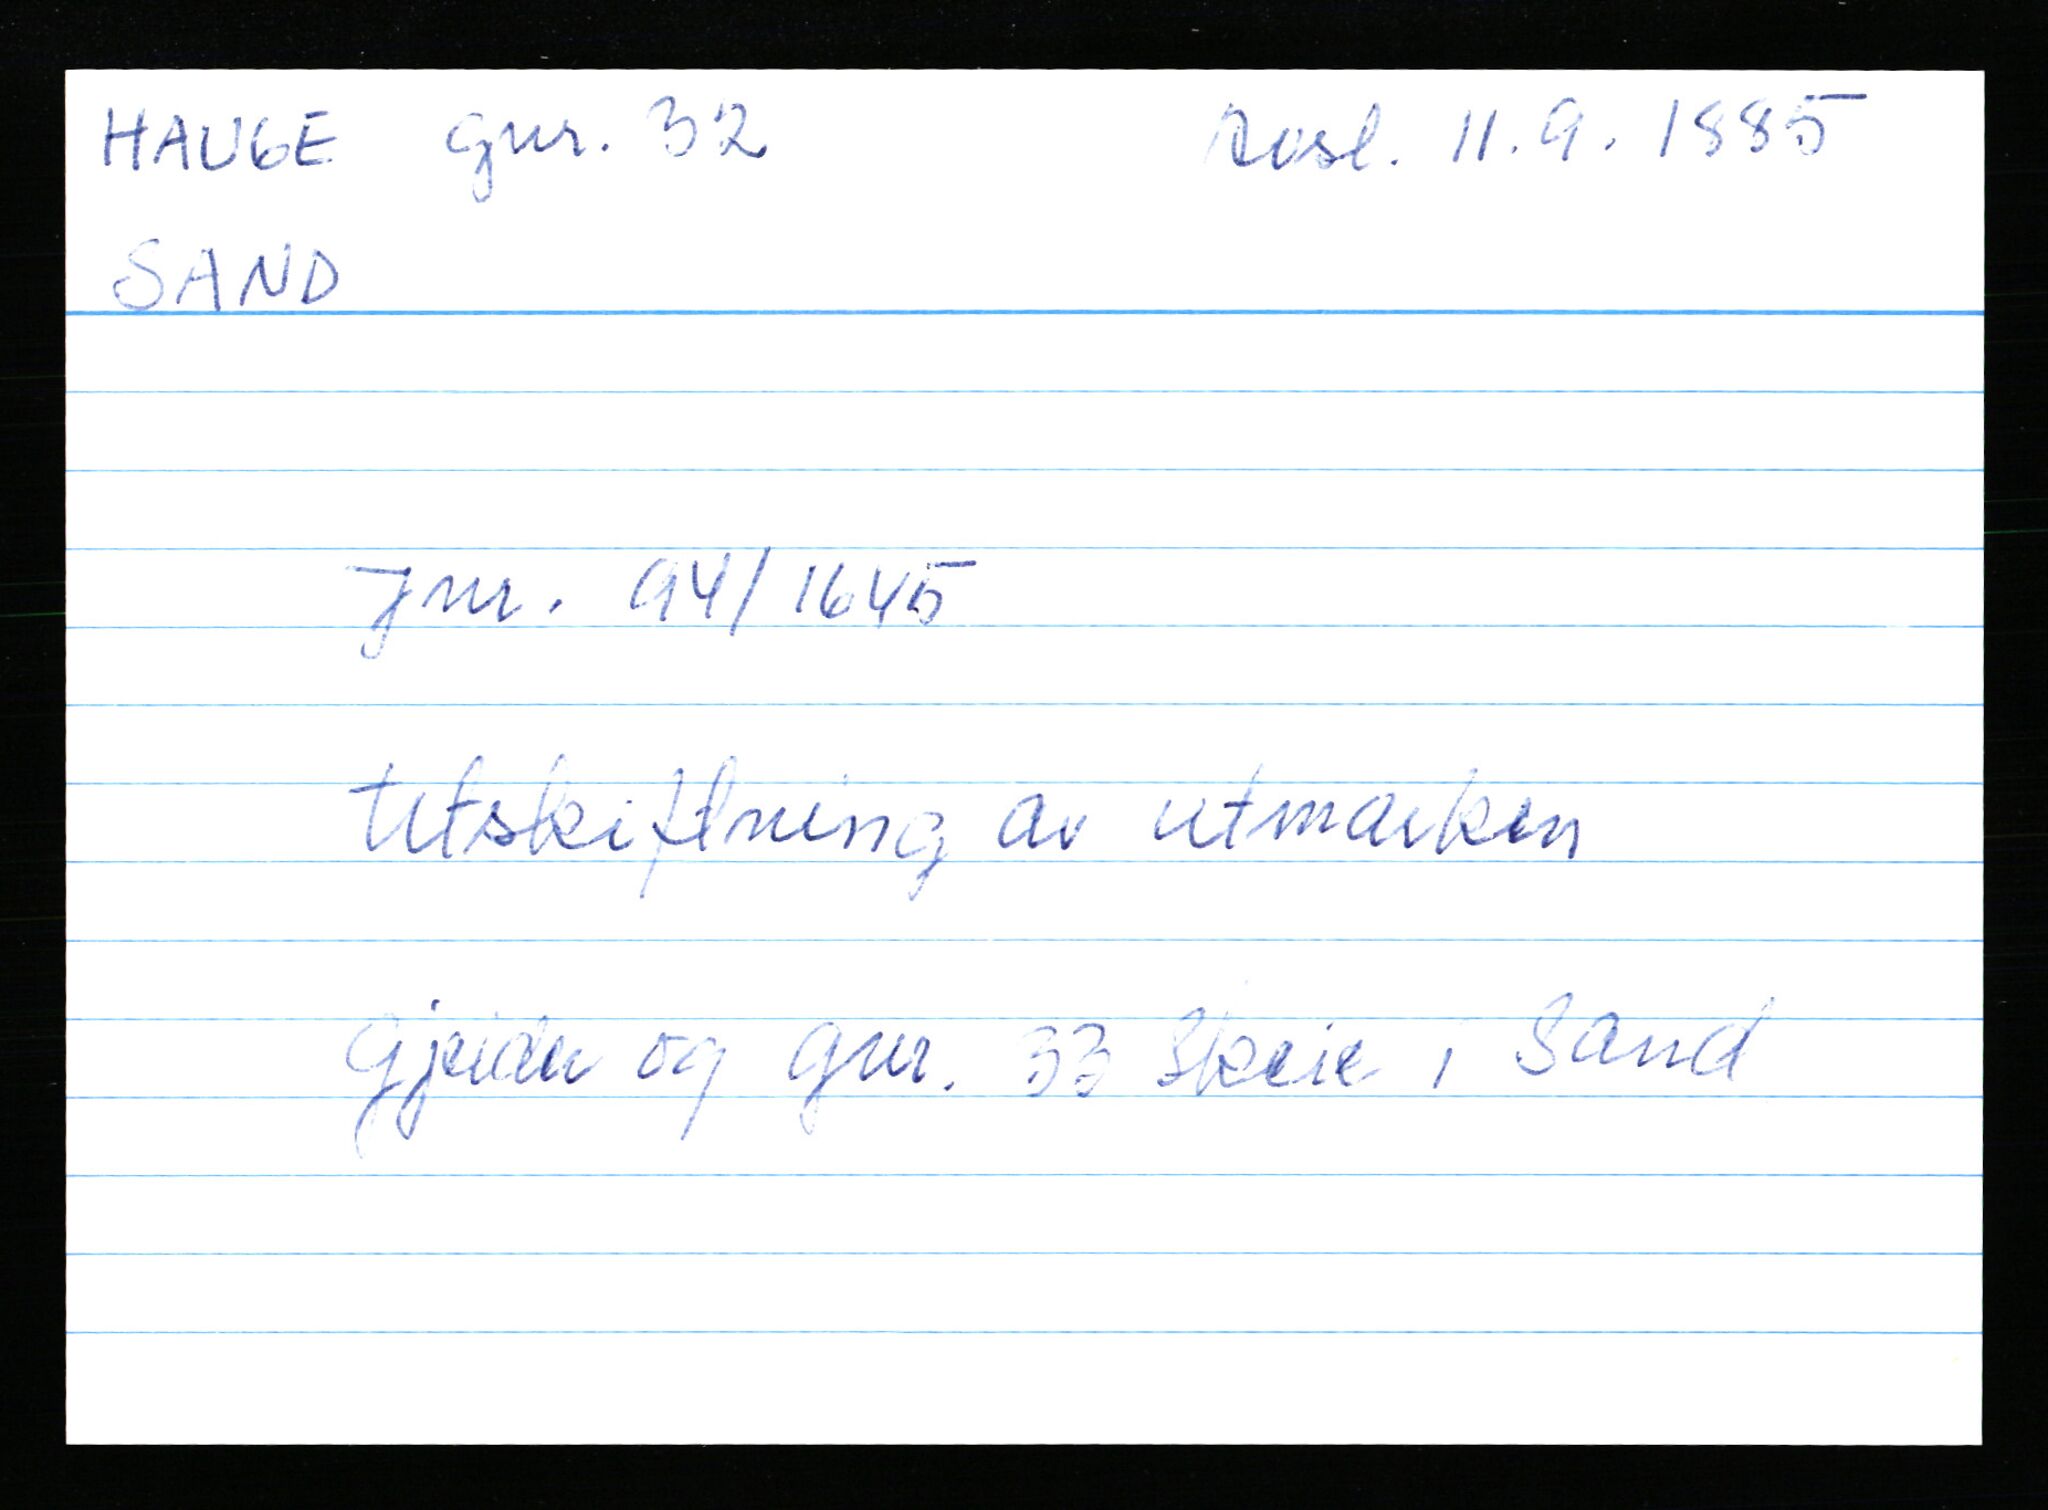 HAUGE gnr. 32 Avsl. 11.9.1885
SAND
Jnr. 94/1645
Utskiftning av utmarken
Gjeider og gnr. 33 Skeie i Sand